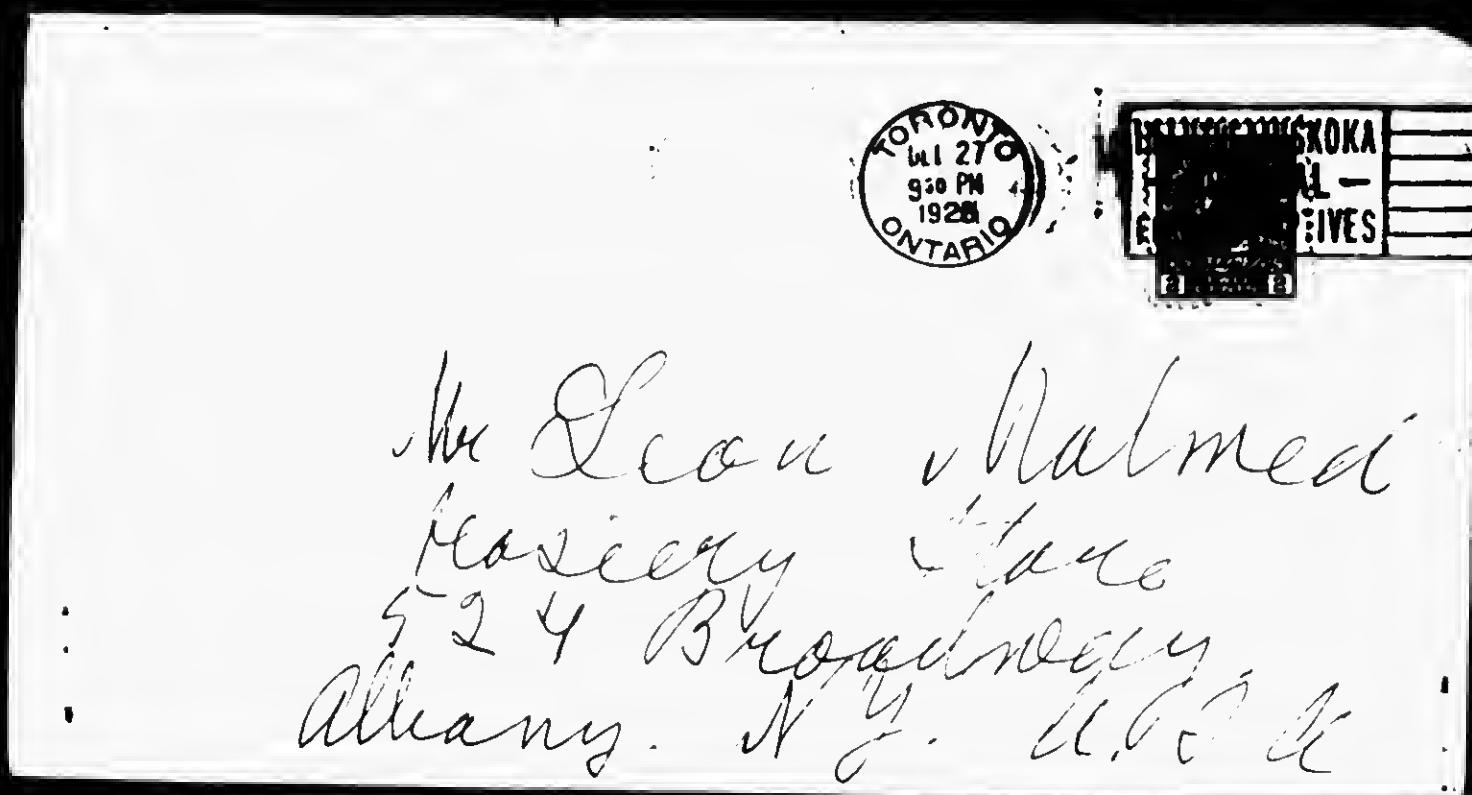 TORONTO
27
930 PM
1928
ONTARIO
2 2
Mr Leon Malmed
Hosiery Store
524 Broadway
Albany. N.Y. U.S.A